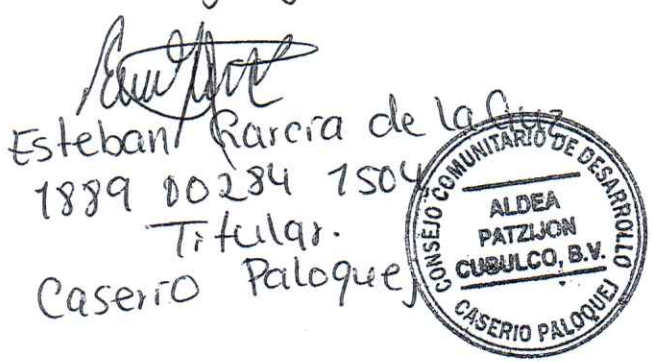 Esteban García de la Cruz
1889 00284 1504
Titular.
Caserio Paloquej
CONSEJO COMUNITARIO DE DESARROLLO
ALDEA
PATZIJON
CUBULCO, B.V.
CASERIO PALOQUEJ